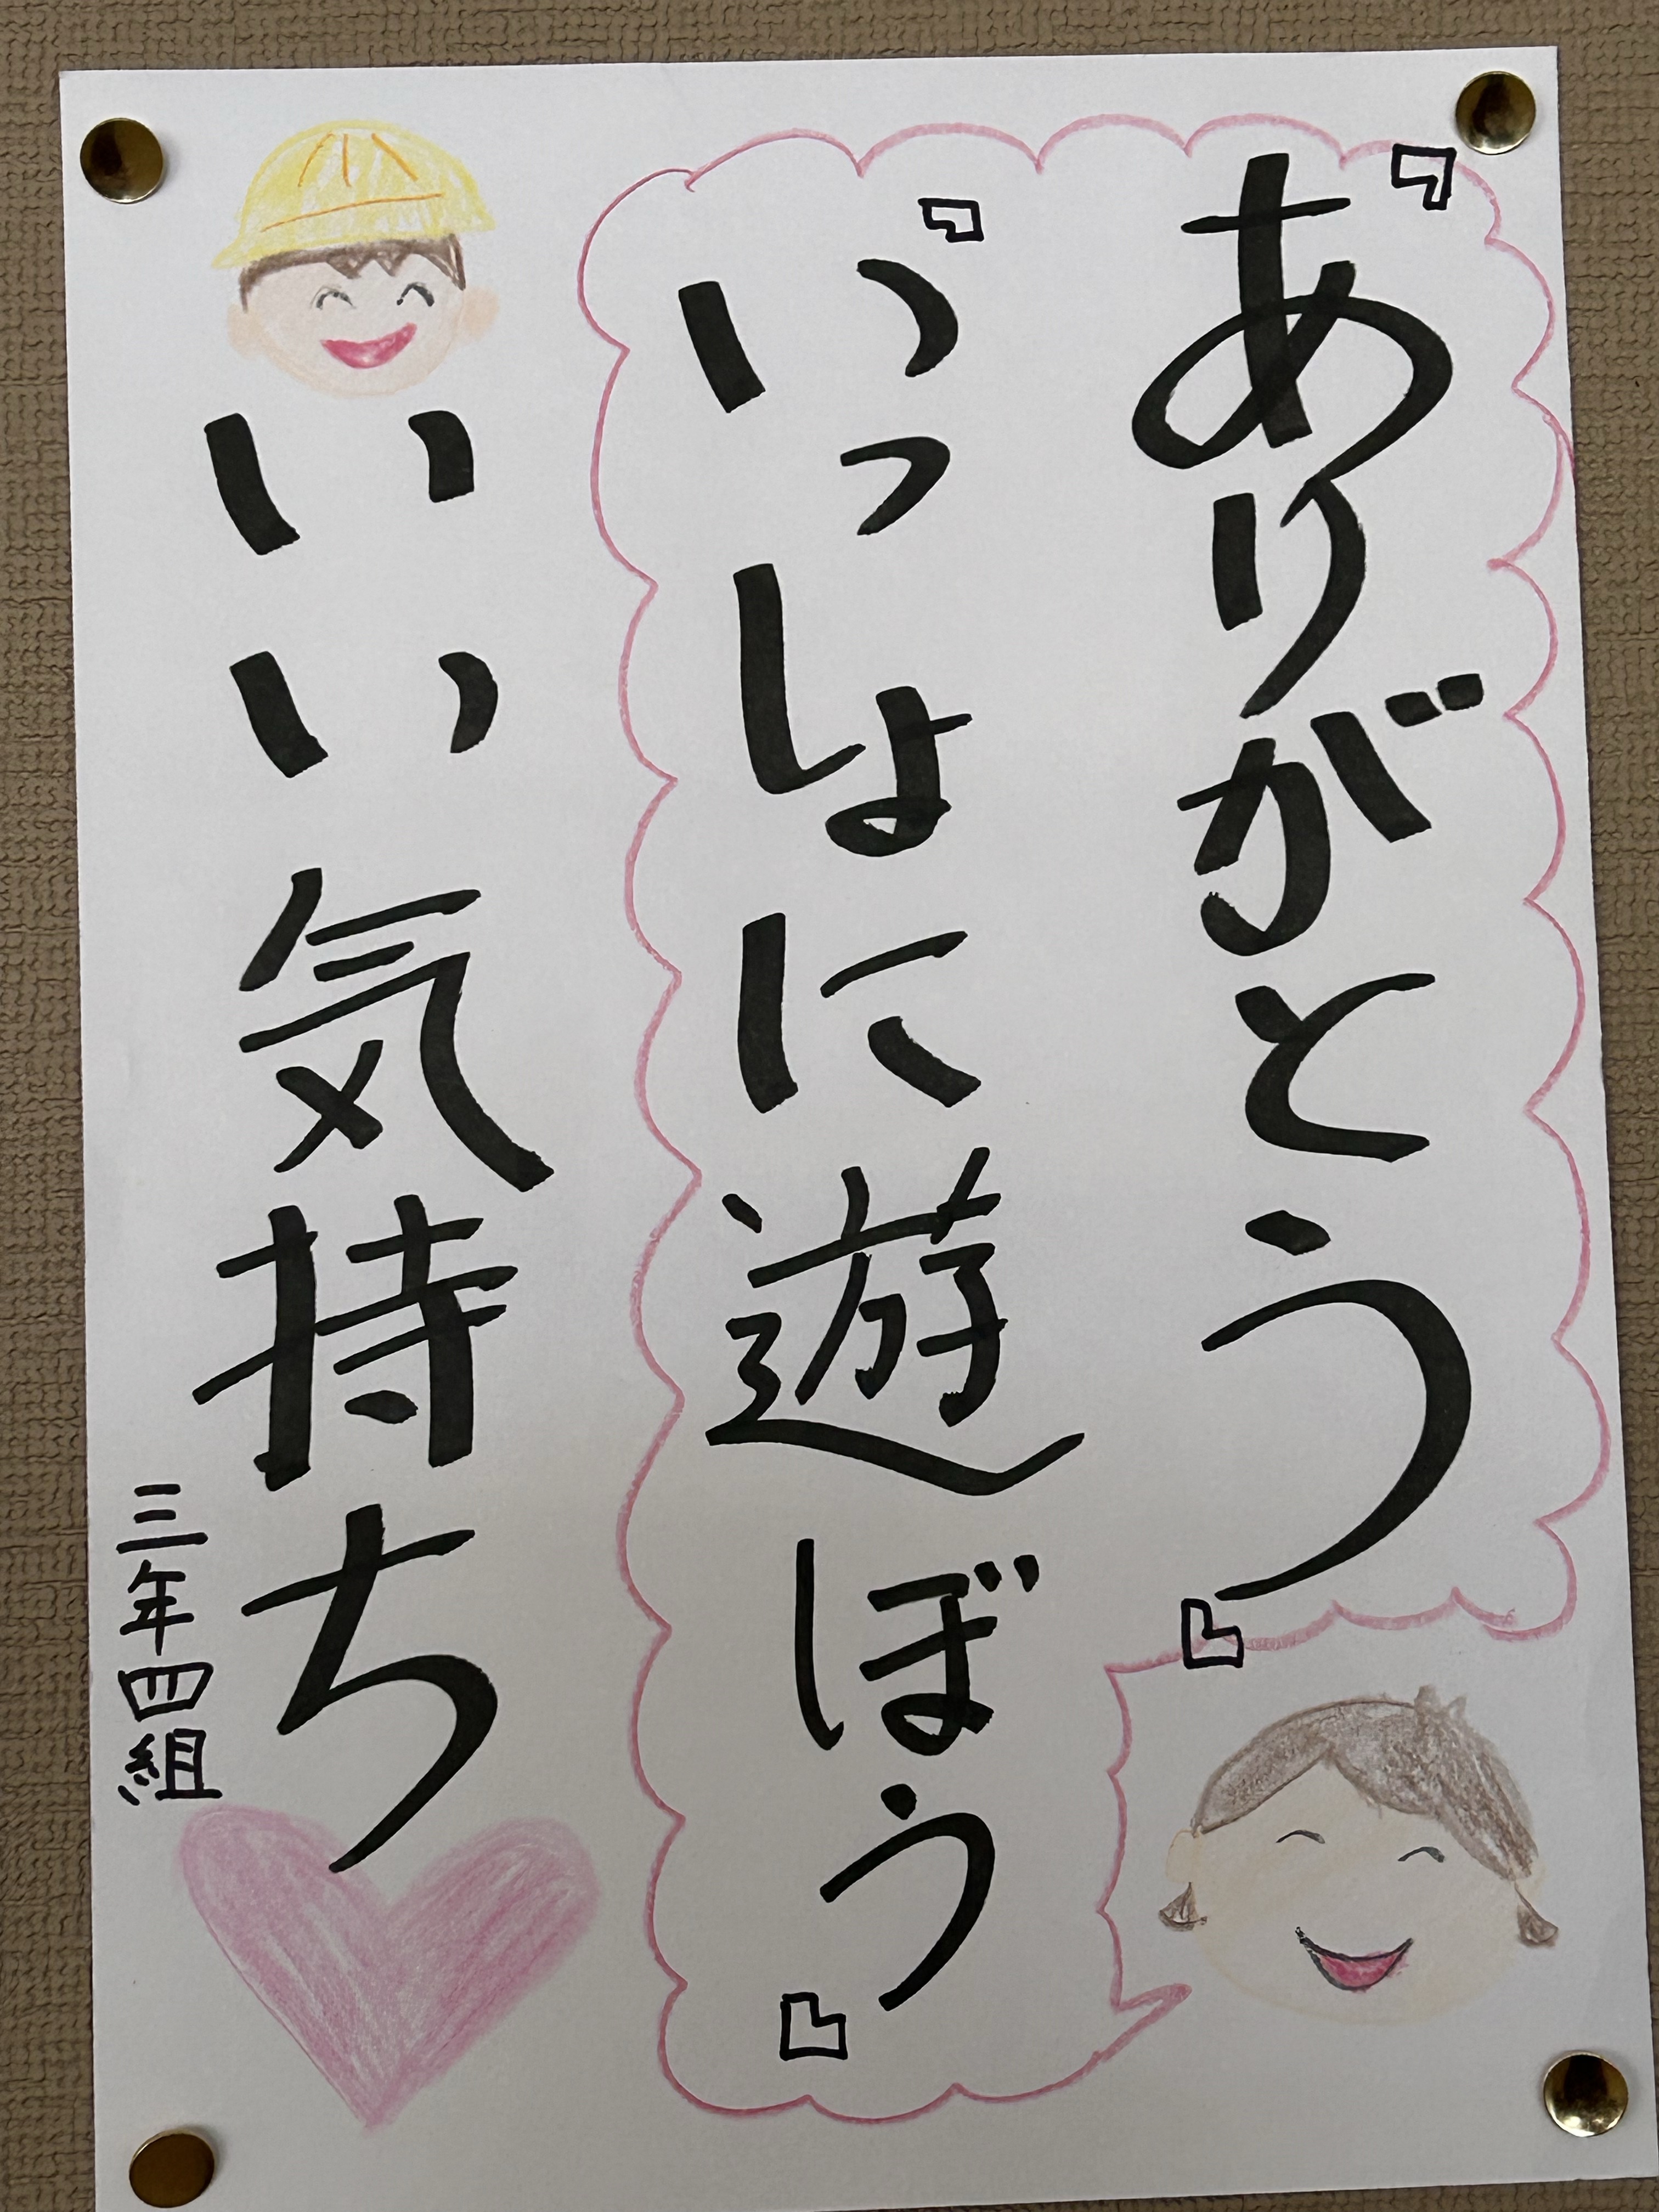 『ありがとう』
『いっしょに遊ぼう』
いい気持ち
三年四組